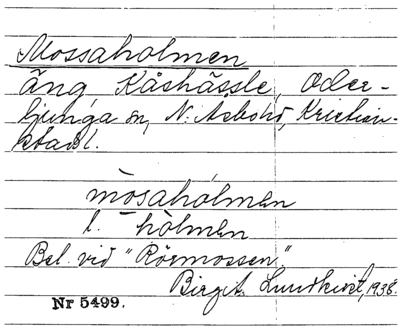 Mossaholmen
äng Kåshässle, Oder-
ljunga sn, N. Åsbohd, Kristian-
stadsl.
mòsahòlmen
l. – hòlmen
Bel. vid "Rörmossen".
Birgit Lundkvist, 1938.
Nr 5499.